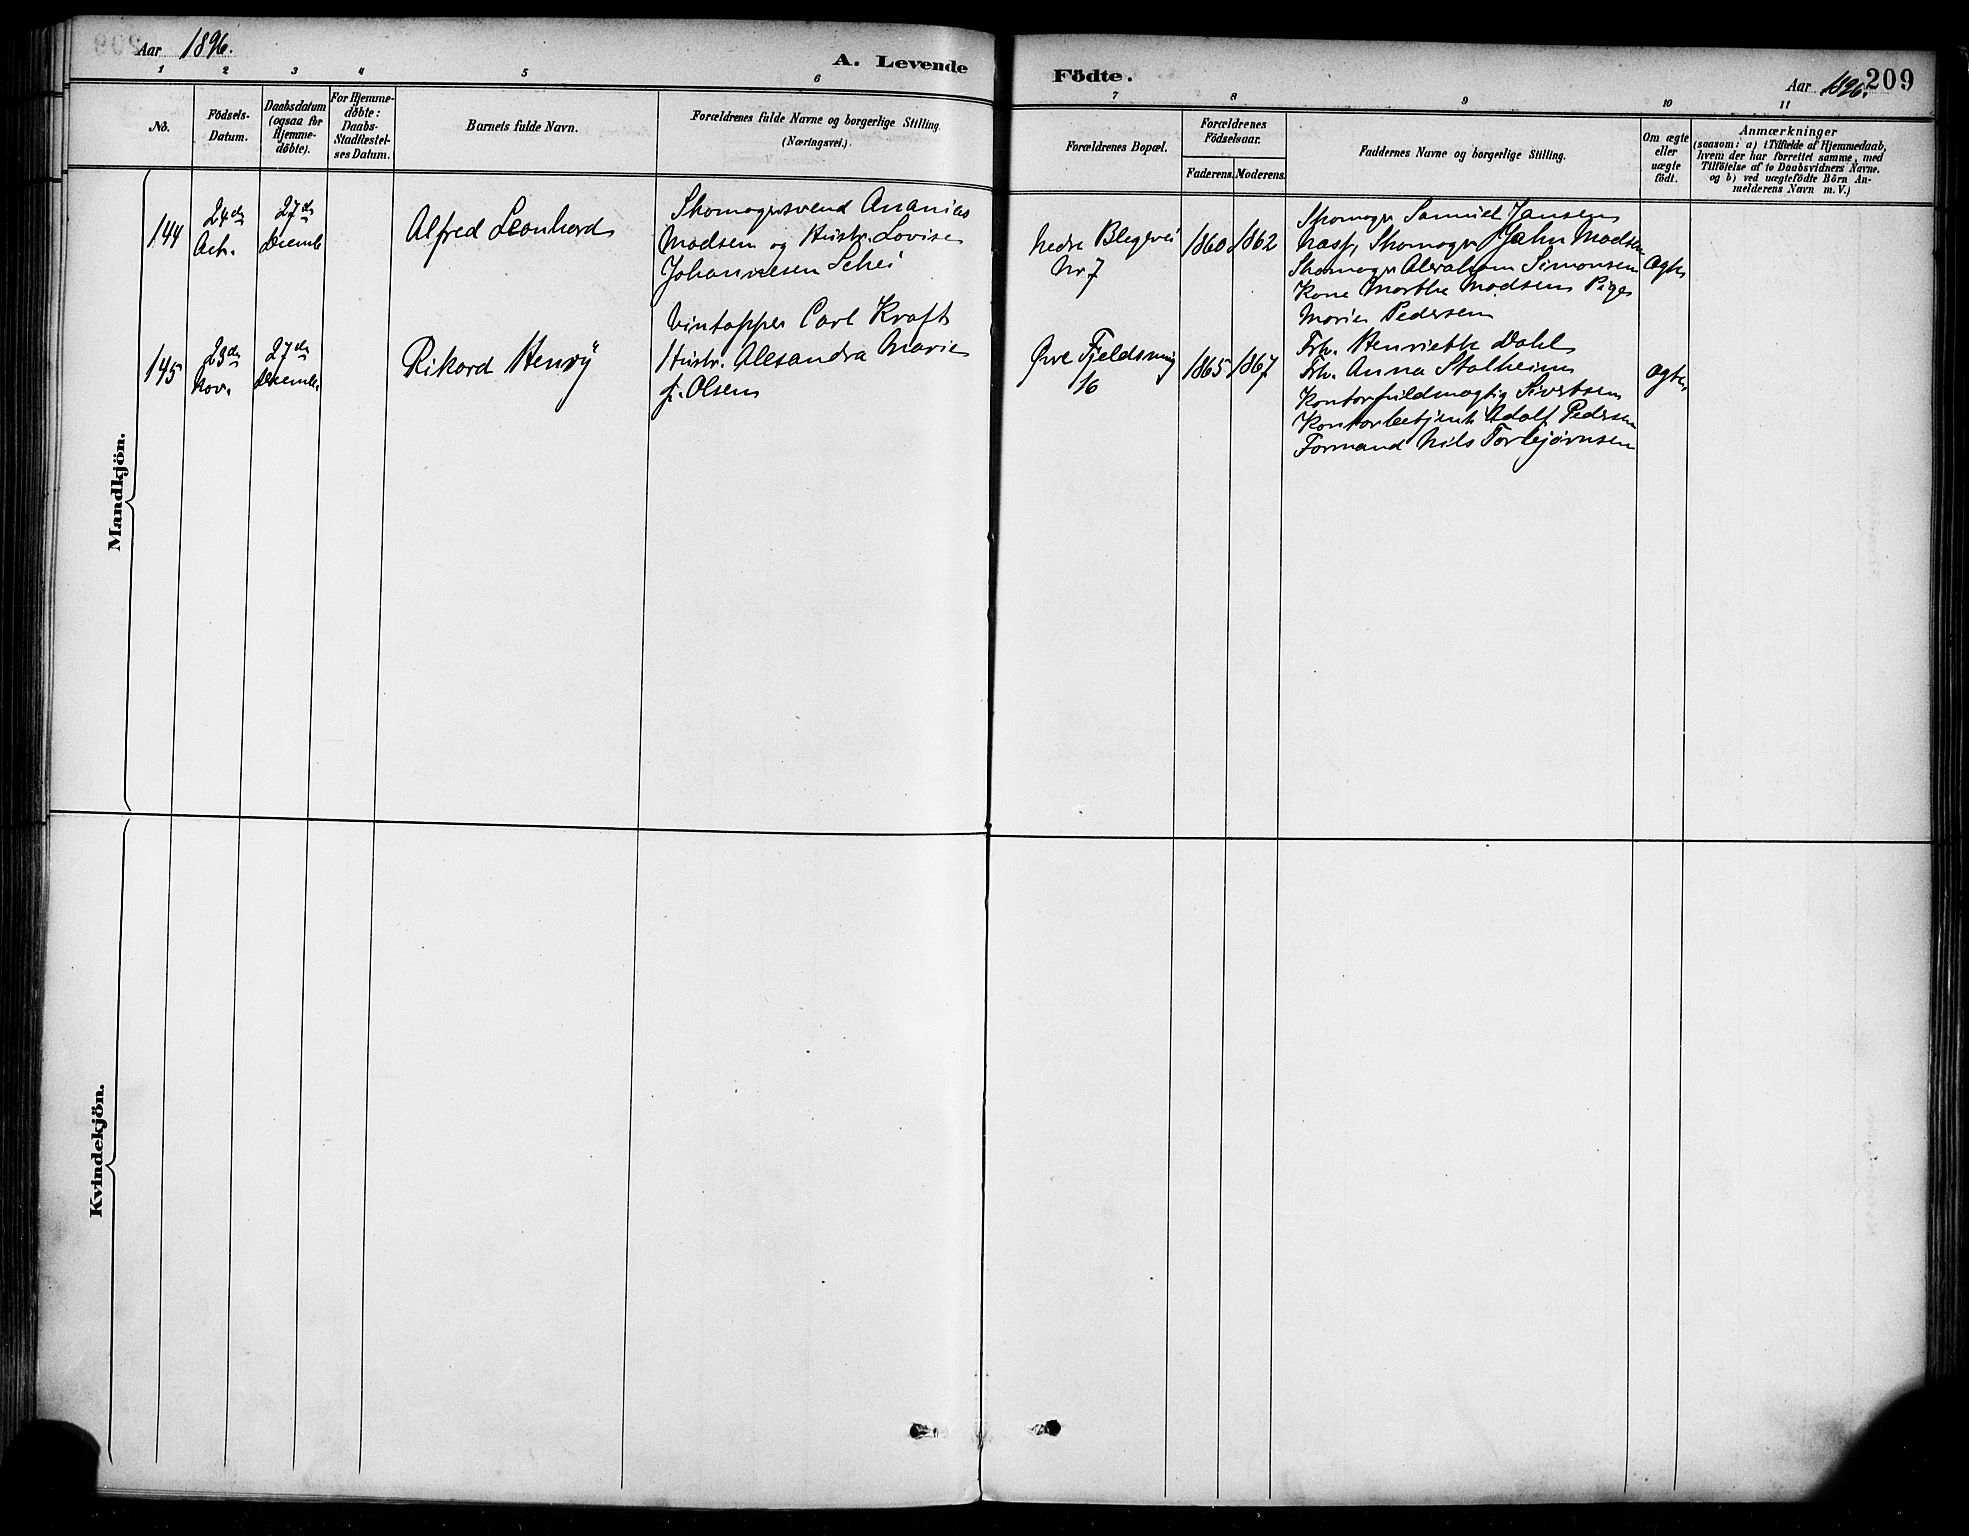 Aar 1896.
A. Levende
Födte.
Aar 1896.
209
1 2 3 4 5 6 7 8 9 10 11
No.
Födsels-
Datum.
Daabsdatum
(ogsaa for
Hjemme-
døbte).
For Hjemme-
døbte:
Daabs-
Stadfæstel-
ses Datum.
Barnets fulde Navn.
Forældrenes fulde Navne og borgerlige Stilling.
(Næringsvei.)
Forældrenes Bopæl.
Forældrenes
Födselsaar.
Faderens.
Moderens.
Faddernes Navne og borgerlige Stilling.
Om ægte
eller
uægte
født.
Anmærkninger
(saasom: a) i Tilfælde af Hjemmedaab,
hvem der har forrettet samme, med
Tilföielse af to Daabsvidners Navne.
og b) ved uægtefödte Börn An-
melderens Navn m. V.)
Mandkjön.
144
24de
Oct.
27de
Decemb
Alfred Leonhard
Skomagersvend Ananias
Madsen og Hustr. Lovise
Johannesen Schei
Nedre Blegevei
Nr 7
1860
1862
Skomager Samuel Jansen
Skomager John Madsen
Skomager Abraham Simonsen
Kone Marthe Madsen Pige
Marie Pedersen
Ægte
145
23de
Nov.
27de
Decemb.
Rikard Henry
Vintapper Carl Kraft
Hustr. Alexandra Marie
f. Olsen
Øvre Fjeldsmug
16
1865
1867
Frk. Henriette Dahl
Frk. Anna Stalheim
Kontorfuldmægtig Sivertsen
Kontorbetjent Adolf Pedersen
Formand Nils Torbjørnsen
Ægte
Kvindekjön.